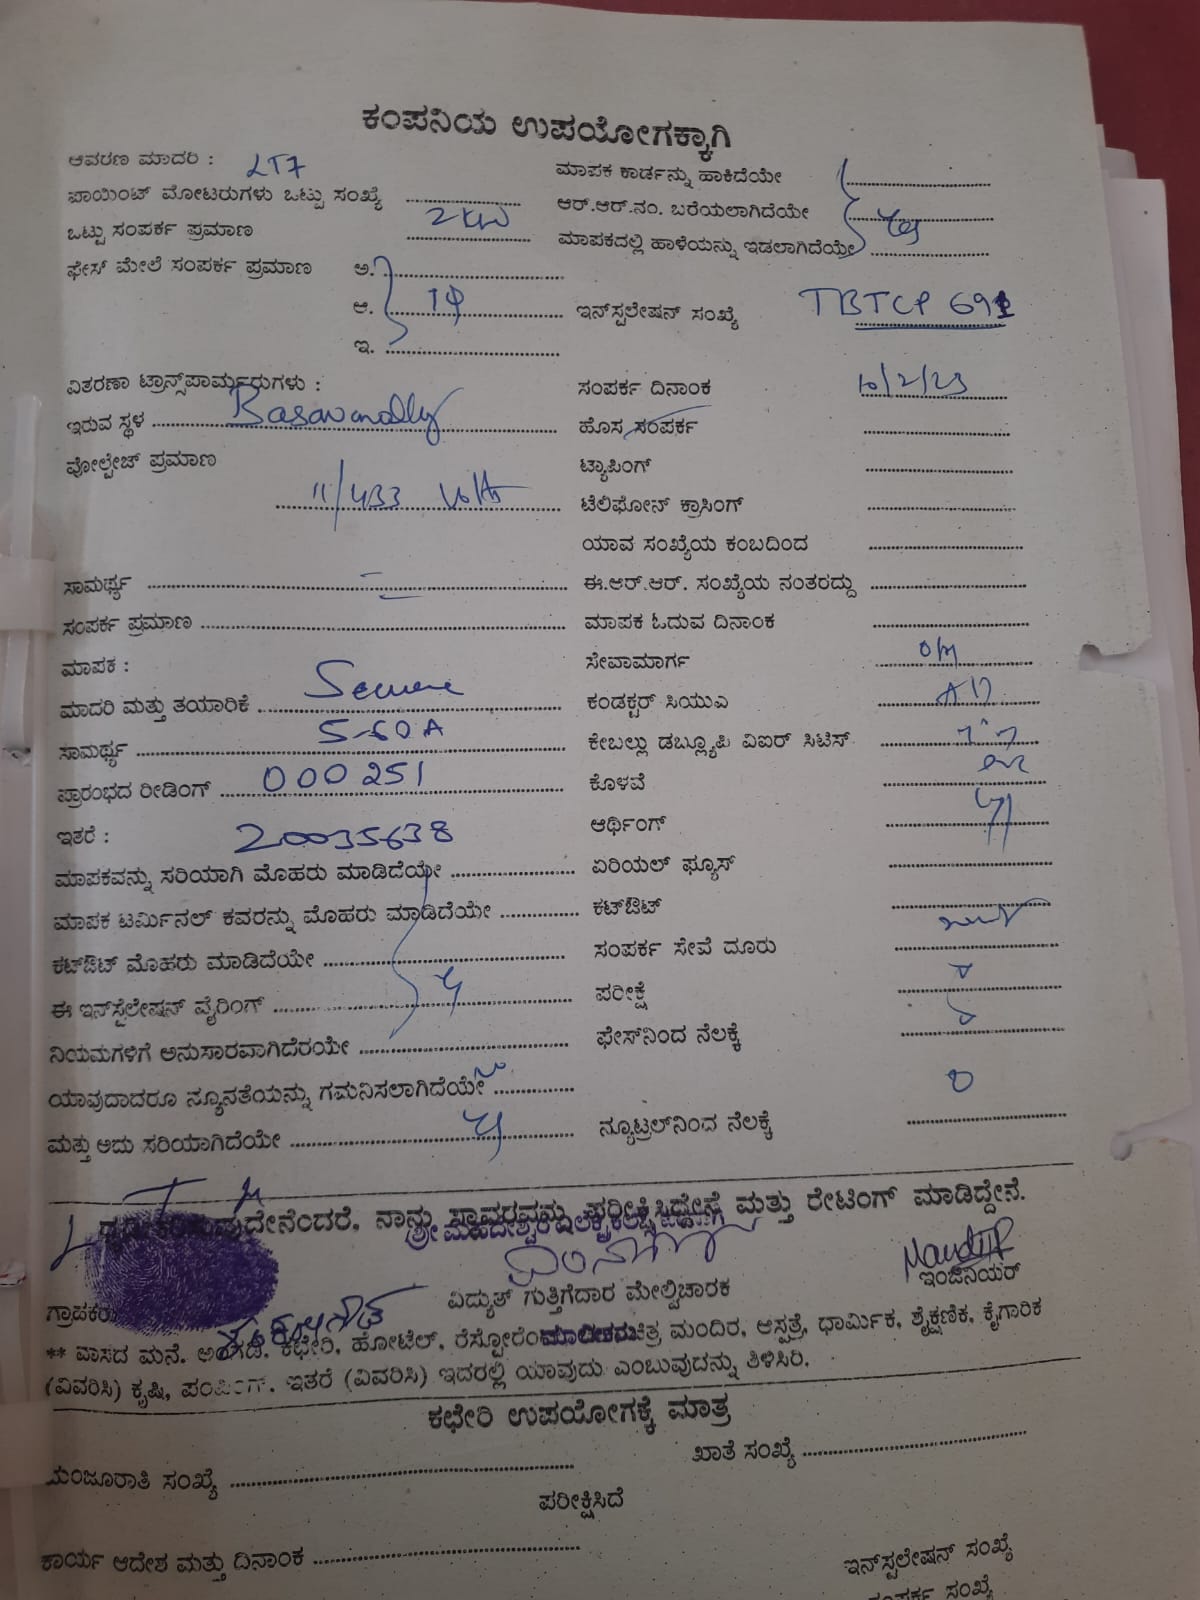 ಕಂಪನಿಯ ಉಪಯೋಗಕ್ಕಾಗಿ
ಆವರಣ ಮಾದರಿ : LT7
ಮಾಪಕ ಕಾರ್ಡನ್ನು ಹಾಕಿದೆಯೇ
ಪಾಯಿಂಟ್ ಮೋಟರುಗಳು ಒಟ್ಟು ಸಂಖ್ಯೆ
ಆರ್.ಆರ್.ನಂ. ಬರೆಯಲಾಗಿದೆಯೇ Yes
ಒಟ್ಟು ಸಂಪರ್ಕ ಪ್ರಮಾಣ 2KW
ಮಾಪಕದಲ್ಲಿ ಹಾಳೆಯನ್ನು ಇಡಲಾಗಿದೆಯೇ
ಫೇಸ್ ಮೇಲೆ ಸಂಪರ್ಕ ಪ್ರಮಾಣ ಅ.
ಆ. 1Φ
ಇನ್‌ಸ್ಟಲೇಷನ್ ಸಂಖ್ಯೆ TBTCP 691
ಇ.
ವಿತರಣಾ ಟ್ರಾನ್ಸ್‌ಪಾರ್ಮರುಗಳು :
ಸಂಪರ್ಕ ದಿನಾಂಕ 10/2/23
ಇರುವ ಸ್ಥಳ
ಹೊಸ ಸಂಪರ್ಕ
ವೋಲ್ಟೇಜ್ ಪ್ರಮಾಣ 11/433 Volts
ಟ್ಯಾಪಿಂಗ್
ಟೆಲಿಫೋನ್ ಕ್ರಾಸಿಂಗ್
ಯಾವ ಸಂಖ್ಯೆಯ ಕಂಬದಿಂದ
ಸಾಮರ್ಥ್ಯ
ಈ.ಆರ್.ಆರ್. ಸಂಖ್ಯೆಯ ನಂತರದ್ದು
ಸಂಪರ್ಕ ಪ್ರಮಾಣ
ಮಾಪಕ ಓದುವ ದಿನಾಂಕ
ಮಾಪಕ :
ಸೇವಾಮಾರ್ಗ O/H
ಮಾದರಿ ಮತ್ತು ತಯಾರಿಕೆ Secure
ಕಂಡಕ್ಟರ್ ಸಿಯುಎ
ಸಾಮರ್ಥ್ಯ 5-60A
ಕೇಬಲ್ಲು ಡಬ್ಲ್ಯೂಪಿ ವಿಐರ್ ಸಿಟಿಸ್
ಪ್ರಾರಂಭದ ರೀಡಿಂಗ್ 000251
ಕೊಳವೆ
ಇತರೆ : 20035638
ಆರ್ಥಿಂಗ್
ಮಾಪಕವನ್ನು ಸರಿಯಾಗಿ ಮೊಹರು ಮಾಡಿದೆಯೇ
ಏರಿಯಲ್ ಫ್ಯೂಸ್
ಮಾಪಕ ಟರ್ಮಿನಲ್ ಕವರನ್ನು ಮೊಹರು ಮಾಡಿದೆಯೇ
ಕಟ್‌ಔಟ್
ಕಟ್‌ಔಟ್ ಮೊಹರು ಮಾಡಿದೆಯೇ
ಸಂಪರ್ಕ ಸೇವೆ ದೂರು
ಈ ಇನ್‌ಸ್ಟಲೇಷನ್ ವೈರಿಂಗ್
ಪರೀಕ್ಷೆ
ನಿಯಮಗಳಿಗೆ ಅನುಸಾರವಾಗಿದೆರಯೇ
ಫೇಸ್‌ನಿಂದ ನೆಲಕ್ಕೆ
ಯಾವುದಾದರೂ ನ್ಯೂನತೆಯನ್ನು ಗಮನಿಸಲಾಗಿದೆಯೇ
ಮತ್ತು ಅದು ಸರಿಯಾಗಿದೆಯೇ
ನ್ಯೂಟ್ರಲ್‌ನಿಂದ ನೆಲಕ್ಕೆ
ನಾನು ಸ್ಥಾವರವನ್ನು ಪರೀಕ್ಷಿಸಿದ್ದೇನೆ ಮತ್ತು ರೇಟಿಂಗ್ ಮಾಡಿದ್ದೇನೆ.
ವಿದ್ಯುತ್ ಗುತ್ತಿಗೆದಾರ ಮೇಲ್ವಿಚಾರಕ
ಇಂಜಿನಿಯರ್
** ವಾಸದ ಮನೆ. ಅಂಗಡಿ, ಕಛೇರಿ, ಹೋಟೆಲ್, ಮಂದಿರ, ಆಸ್ಪತ್ರೆ, ಧಾರ್ಮಿಕ, ಶೈಕ್ಷಣಿಕ, ಕೈಗಾರಿಕ
(ವಿವರಿಸಿ) ಕೃಷಿ, ಪಂಪಿಂಗ್. ಇತರೆ (ವಿವರಿಸಿ) ಇದರಲ್ಲಿ ಯಾವುದು ಎಂಬುವುದನ್ನು ತಿಳಿಸಿರಿ.
ಕಛೇರಿ ಉಪಯೋಗಕ್ಕೆ ಮಾತ್ರ
ಖಾತೆ ಸಂಖ್ಯೆ
ಮಂಜೂರಾತಿ ಸಂಖ್ಯೆ
ಪರೀಕ್ಷಿಸಿದೆ
ಕಾರ್ಯ ಆದೇಶ ಮತ್ತು ದಿನಾಂಕ
ಇನ್‌ಸ್ಟಲೇಷನ್ ಸಂಖ್ಯೆ
ಸಂಪರ್ಕ ಸಂಖ್ಯೆ